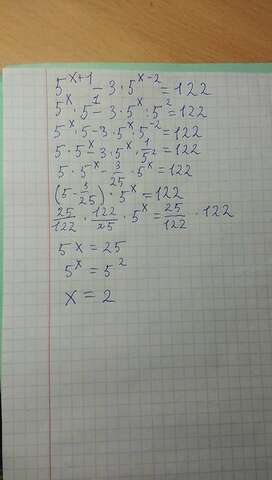 5^{x+1} - 3 · 5^{x-2} = 122
5^x · 5^1 - 3 · 5^x : 5^2 = 122
5^x · 5 - 3 · 5^x · 5^{-2} = 122
5 · 5^x - 3 · 5^x · \frac{1}{5^2} = 122
5 · 5^x - \frac{3}{25} · 5^x = 122
(5 - \frac{3}{25}) · 5^x = 122
\frac{25}{122} · \frac{122}{25} · 5^x = \frac{25}{122} · 122
5^x = 25
5^x = 5^2
x = 2